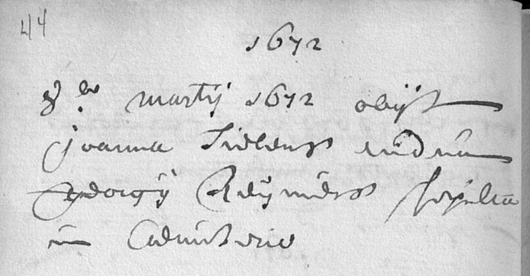 44
1672
8 martij 1672 obijt
joanna vidua
georgij Reijners sepulta
in Cemiterio